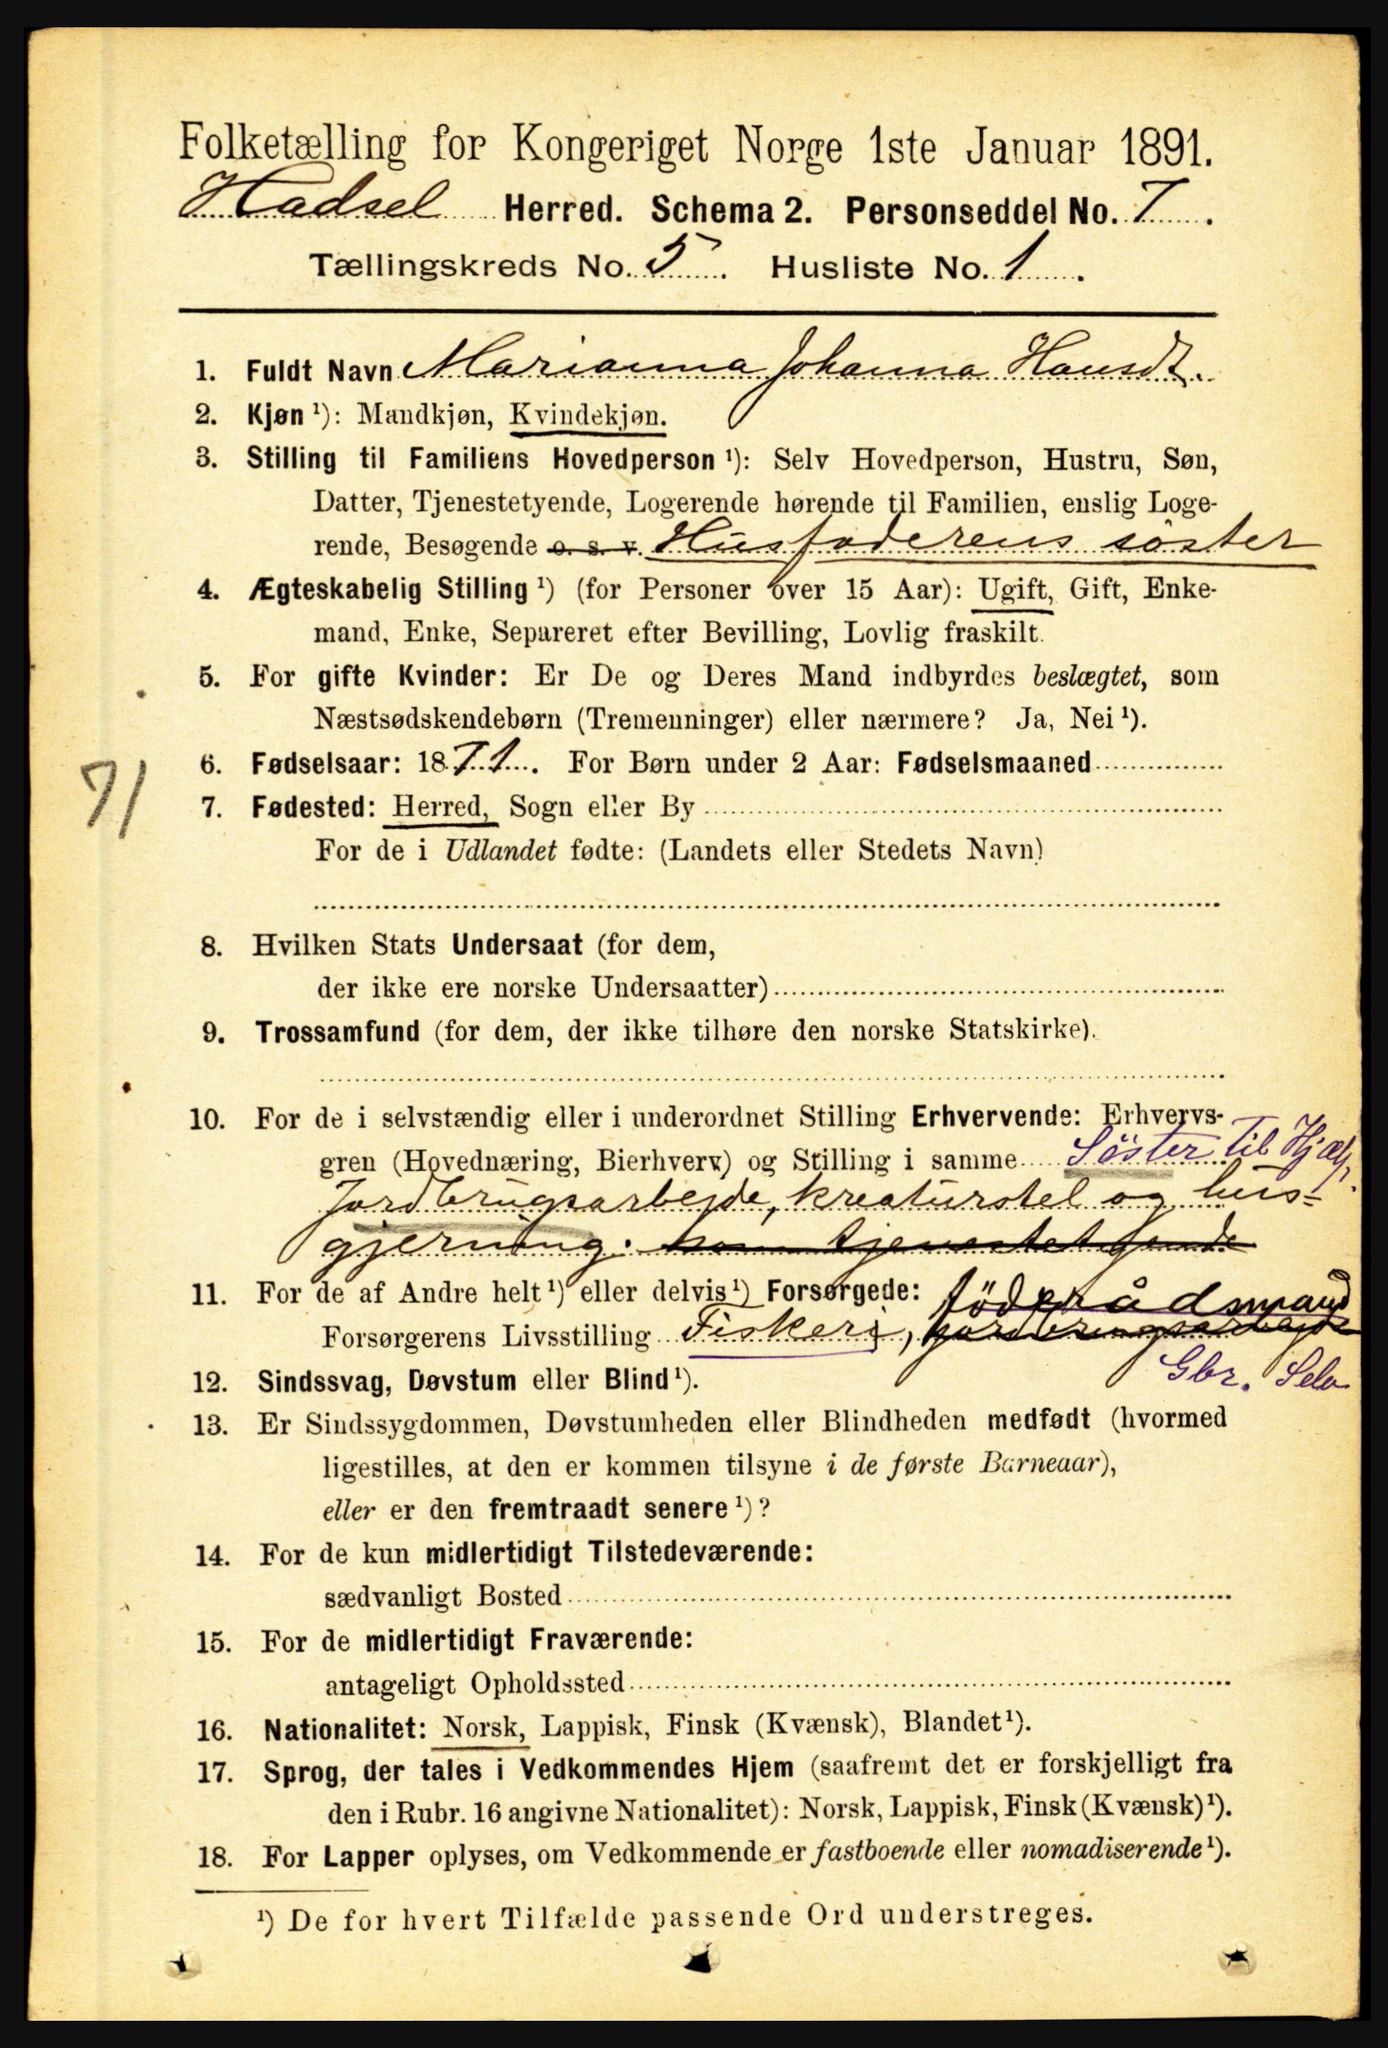 Folketælling for Kongeriget Norge 1ste Januar 1891.
Hadsel Herred. Schema 2. Personseddel No. 7.
Tællingskreds No. 5. Husliste No. 1.
1. Fuldt Navn Marianna Johanna Hansdt.
2. Kjøn ¹): Mandkjøn, Kvindekjøn.
3. Stilling til Familiens Hovedperson ¹): Selv Hovedperson, Hustru, Søn,
Datter, Tjenestetyende, Logerende hørende til Familien, enslig Loge-
rende, Besøgende o. s. v. Husfaderens söster
4. Ægteskabelig Stilling ¹) (for Personer over 15 Aar): Ugift, Gift, Enke-
mand, Enke, Separeret efter Bevilling, Lovlig fraskilt.
5. For gifte Kvinder: Er De og Deres Mand indbyrdes beslægtet, som
Næstsødskendebørn (Tremenninger) eller nærmere? Ja, Nei ¹).
71
6. Fødselsaar: 1871. For Børn under 2 Aar: Fødselsmaaned
7. Fødested: Herred, Sogn eller By
For de i Udlandet fødte: (Landets eller Stedets Navn)
8. Hvilken Stats Undersaat (for dem,
der ikke ere norske Undersaatter)
9. Trossamfund (for dem, der ikke tilhøre den norske Statskirke).
10. For de i selvstændig eller i underordnet Stilling Erhvervende: Erhvervs-
gren (Hovednæring, Bierhverv) og Stilling i samme Söster til Hjælp.
Jordbrugsarbejde, kreaturstel og hus-
gjerning. som tjenestetyende
11. For de af Andre helt ¹) eller delvis ¹) Forsørgede: föderådsmand
Forsørgerens Livsstilling Fiskeri, jordbrugsarbejde
Gbr. Selv
12. Sindssvag, Døvstum eller Blind ¹).
13. Er Sindssygdommen, Døvstumheden eller Blindheden medfødt (hvormed
ligestilles, at den er kommen tilsyne i de første Barneaar),
eller er den fremtraadt senere ¹)?
14. For de kun midlertidigt Tilstedeværende:
sædvanligt Bosted
15. For de midlertidigt Fraværende:
antageligt Opholdssted
16. Nationalitet: Norsk, Lappisk, Finsk (Kvænsk), Blandet ¹).
17. Sprog, der tales i Vedkommendes Hjem (saafremt det er forskjelligt fra
den i Rubr. 16 angivne Nationalitet): Norsk, Lappisk, Finsk (Kvænsk) ¹).
18. For Lapper oplyses, om Vedkommende er fastboende eller nomadiserende ¹).
¹) De for hvert Tilfælde passende Ord understreges.